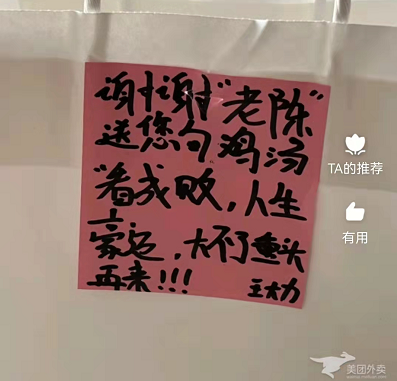 谢谢"老陈"
送您句鸡汤
"看成败，人生
豪迈，大不了重头
再来!!! 王大力
TA的推荐
有用
美团外卖